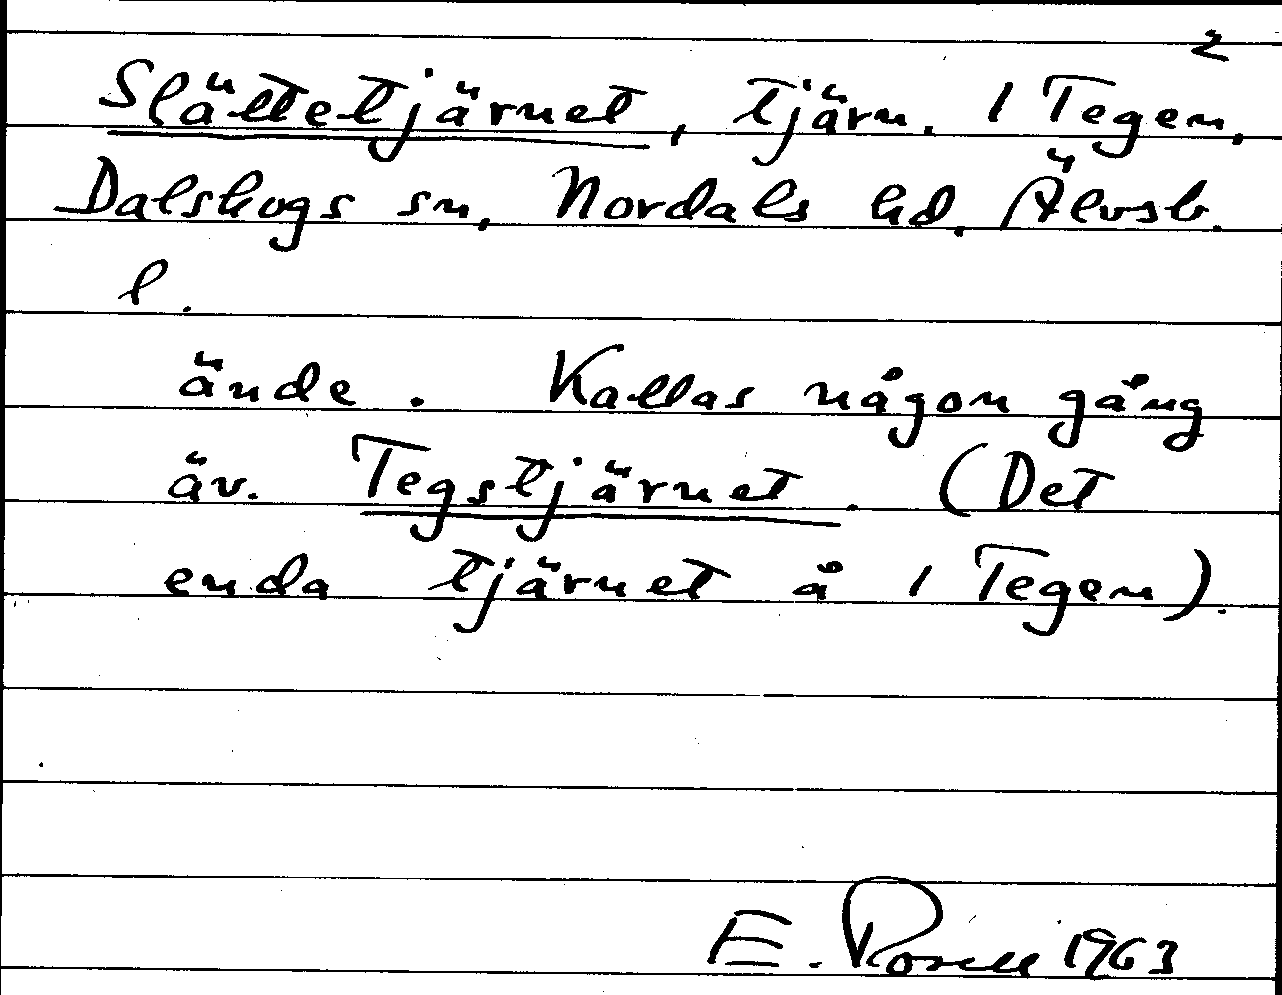 2
Slättetjärnet, tjärn. 1 Tegen,
Dalskogs sn, Nordals hd, Älvsb.
l.
ände. Kallas någon gång
äv. Tegstjärnet. (Det
enda tjärnet å 1 Tegen).
E. Rosell 1963